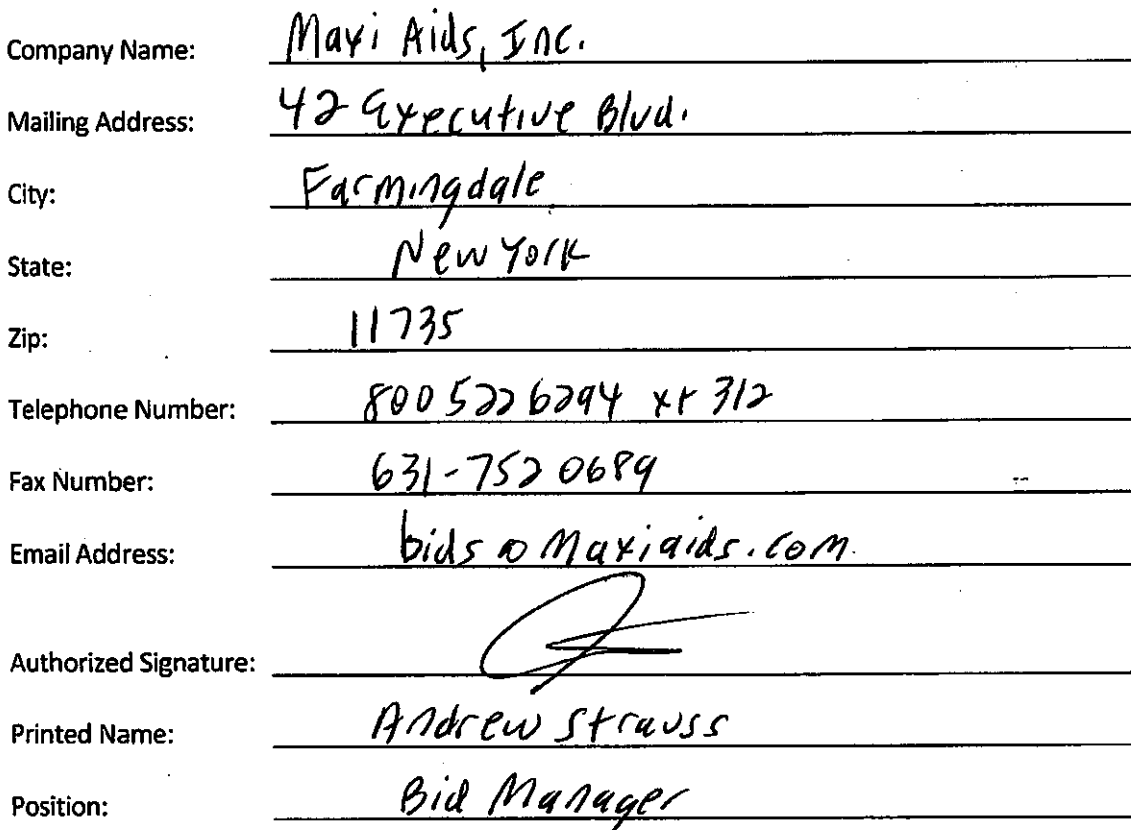 Company Name: Maxi Aids, Inc.
Mailing Address: 42 Executive Blvd.
City: Farmingdale
State: New York
Zip: 11735
Telephone Number: 800 5226294 xt 312
Fax Number: 631-752 0689
Email Address: bids@Maxiaids.com
Authorized Signature:
Printed Name: Andrew Strauss
Position: Bid Manager